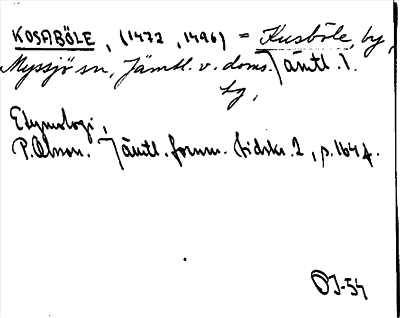 KOSABÖLE, (1472, 1496) = Kusböle, by,
Myssjö sn, Jämtl. v. doms. Jämtl. l.
tg,
Etymologi,
P. Olsson. Jämtl. fornm. tidskr. 2, p. 164 f.
OJ-54